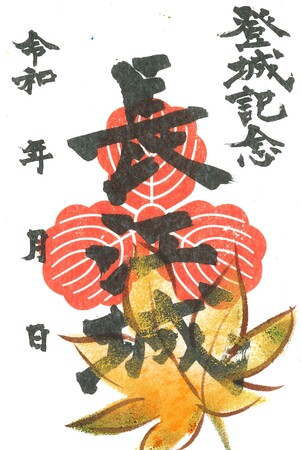 登城記念
長沢城
令和 年 月 日